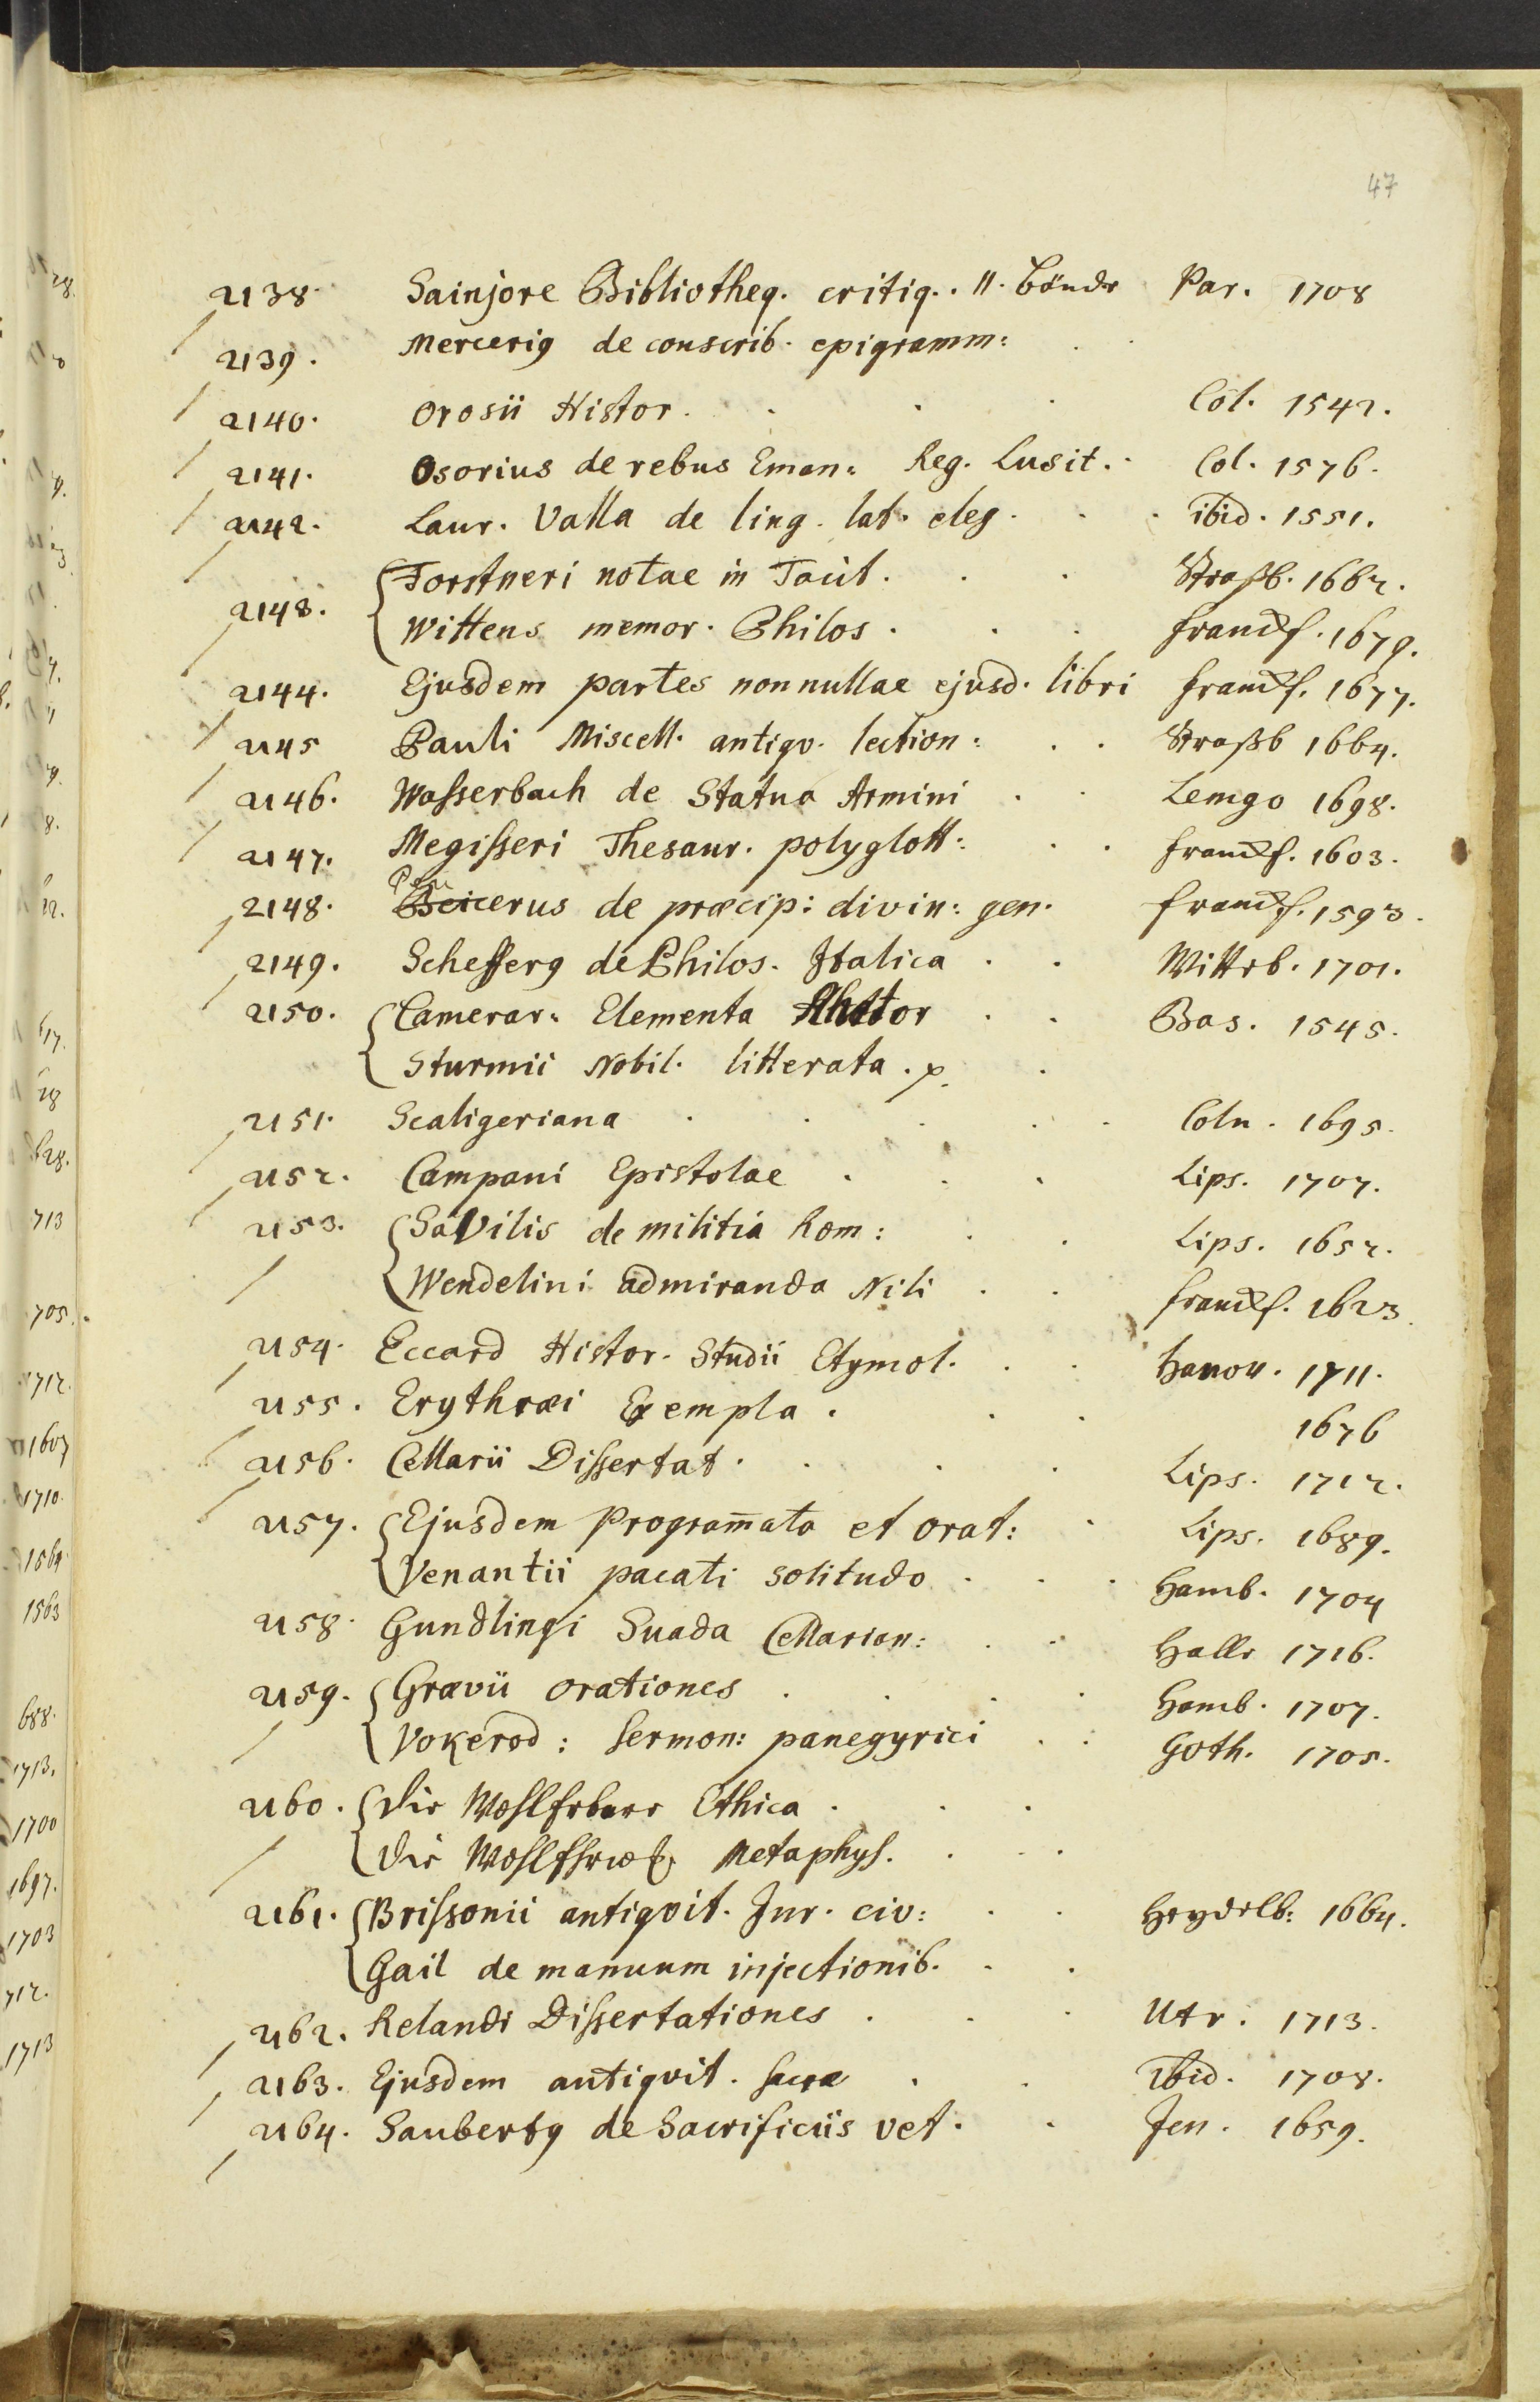 47
2138. Sainjore Bibliotheq. critiq. . II. Bände Par. 1708
2139. Mercerig de conscrib. epigramm:
2140. Orosii Histor. Cöl. 1542.
2141. Osorius de rebus Eman: Reg. Lusit. Col. 1576.
2142. Laur. Valla de ling. lat. eleg. ibid. 1551.
Forstneri notae in Tacit. Straßb. 1662.
2143.
Wittens memor. Philos. Franckf. 1679.
2144. Ejusdem partes nonnullae ejusd. libri Franckf. 1677.
2145 Pauli Miscell. antiqv. lection: Straßb 1664.
2146. Wasserbach de Statua Armini Lemgo 1698.
2147. Megisseri Thesaur. polyglott: Franckf. 1603.
2148. Peucerus de præcip: divin: gen. Franckf. 1593.
2149. Schefferg de Philos. Italica Witteb. 1701.
2150. Camerar: Elementa Rhetor Bas. 1545.
Sturmii Nobil. litterata. p.
2151. Scaligeriana Coln. 1695.
2152. Campani Epistolae Lips. 1707.
2153. Savilis de militia Rom: Lips. 1652.
Wendelini admiranda Nili Franckf. 1623.
2154. Eccard Histor. Studii Etymol. Hanov. 1711.
2155. Erythræi Exempla. 1676
2156. Cellarii Dissertat. Lips. 1712.
2157. Ejusdem Program̅ata et orat: Lips. 1689.
Venantii pacati solitudo Hamb. 1704
2158. Gundlingi Suada Cellarian: Halle 1716.
2159. Grævii orationes Hamb. 1707.
Vokerod: Sermon: panegyrici Goth. 1705.
2160. Die Wohlfebere Ethica.
Die Metaphys.
2161. Brissonii antiqvit. Jur. civ: Heydelb: 1664.
Gail de manuum injectionib.
2162. Relandi Dissertationes Utr. 1713.
2163. Ejusdem antiqvit. sacræ Ibid. 1708.
2164. Saubertg de Sacrificiis vet. Jen. 1659.